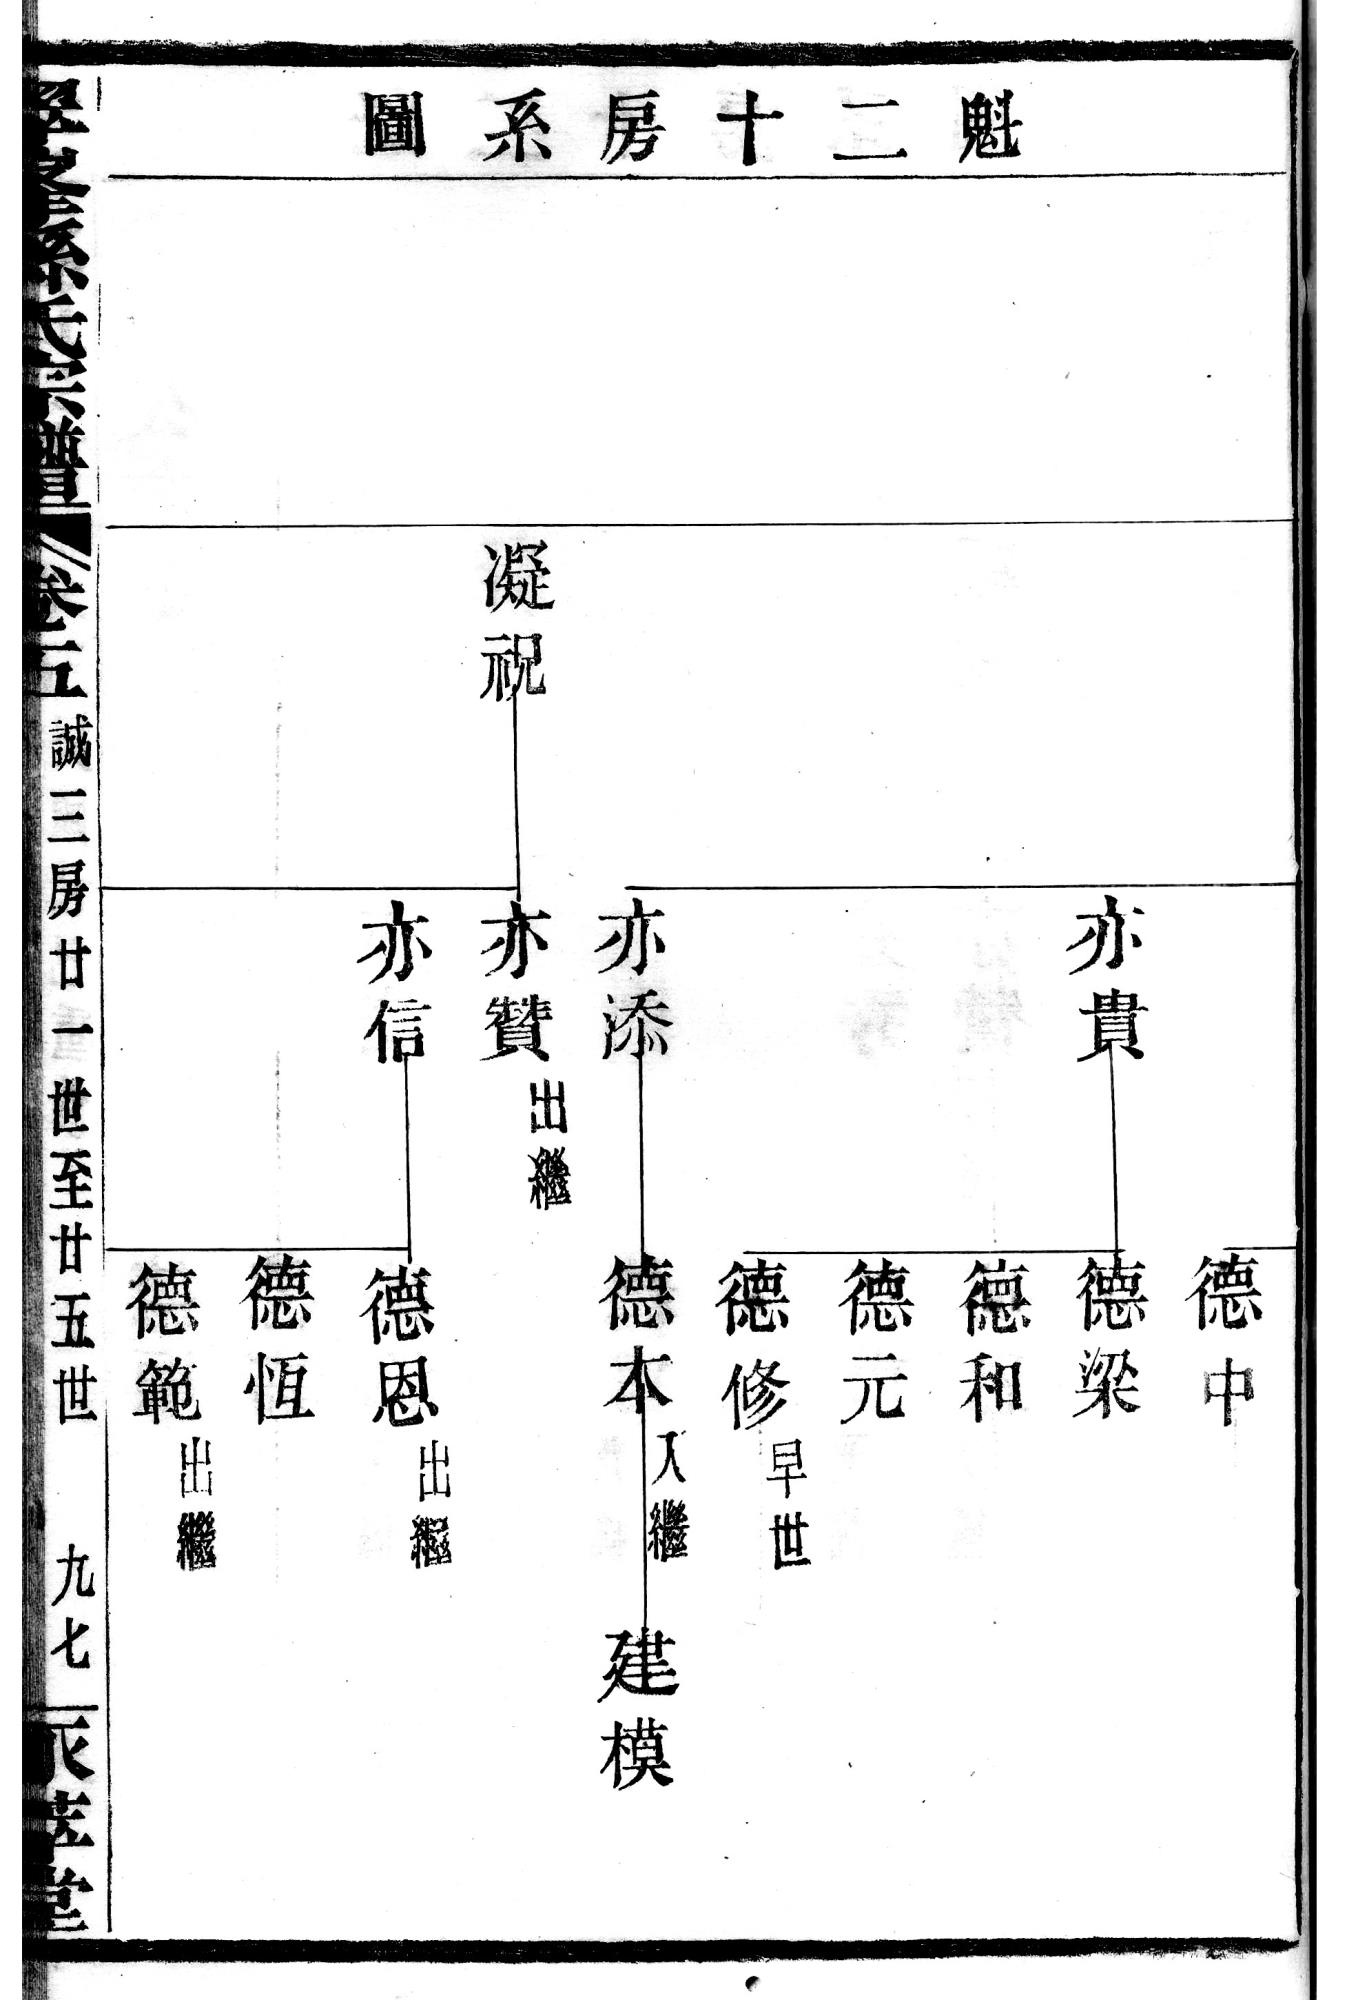 魁二十房系圖
凝祝
亦貴
亦添
亦贊
出繼
亦信
德中
德梁
德和
德元
德修
早世
德本
入繼
德恩
出繼
德恆
德範
出繼
建模
孫氏宗譜
卷五
誠三房廿一世至廿五世
九七
堂